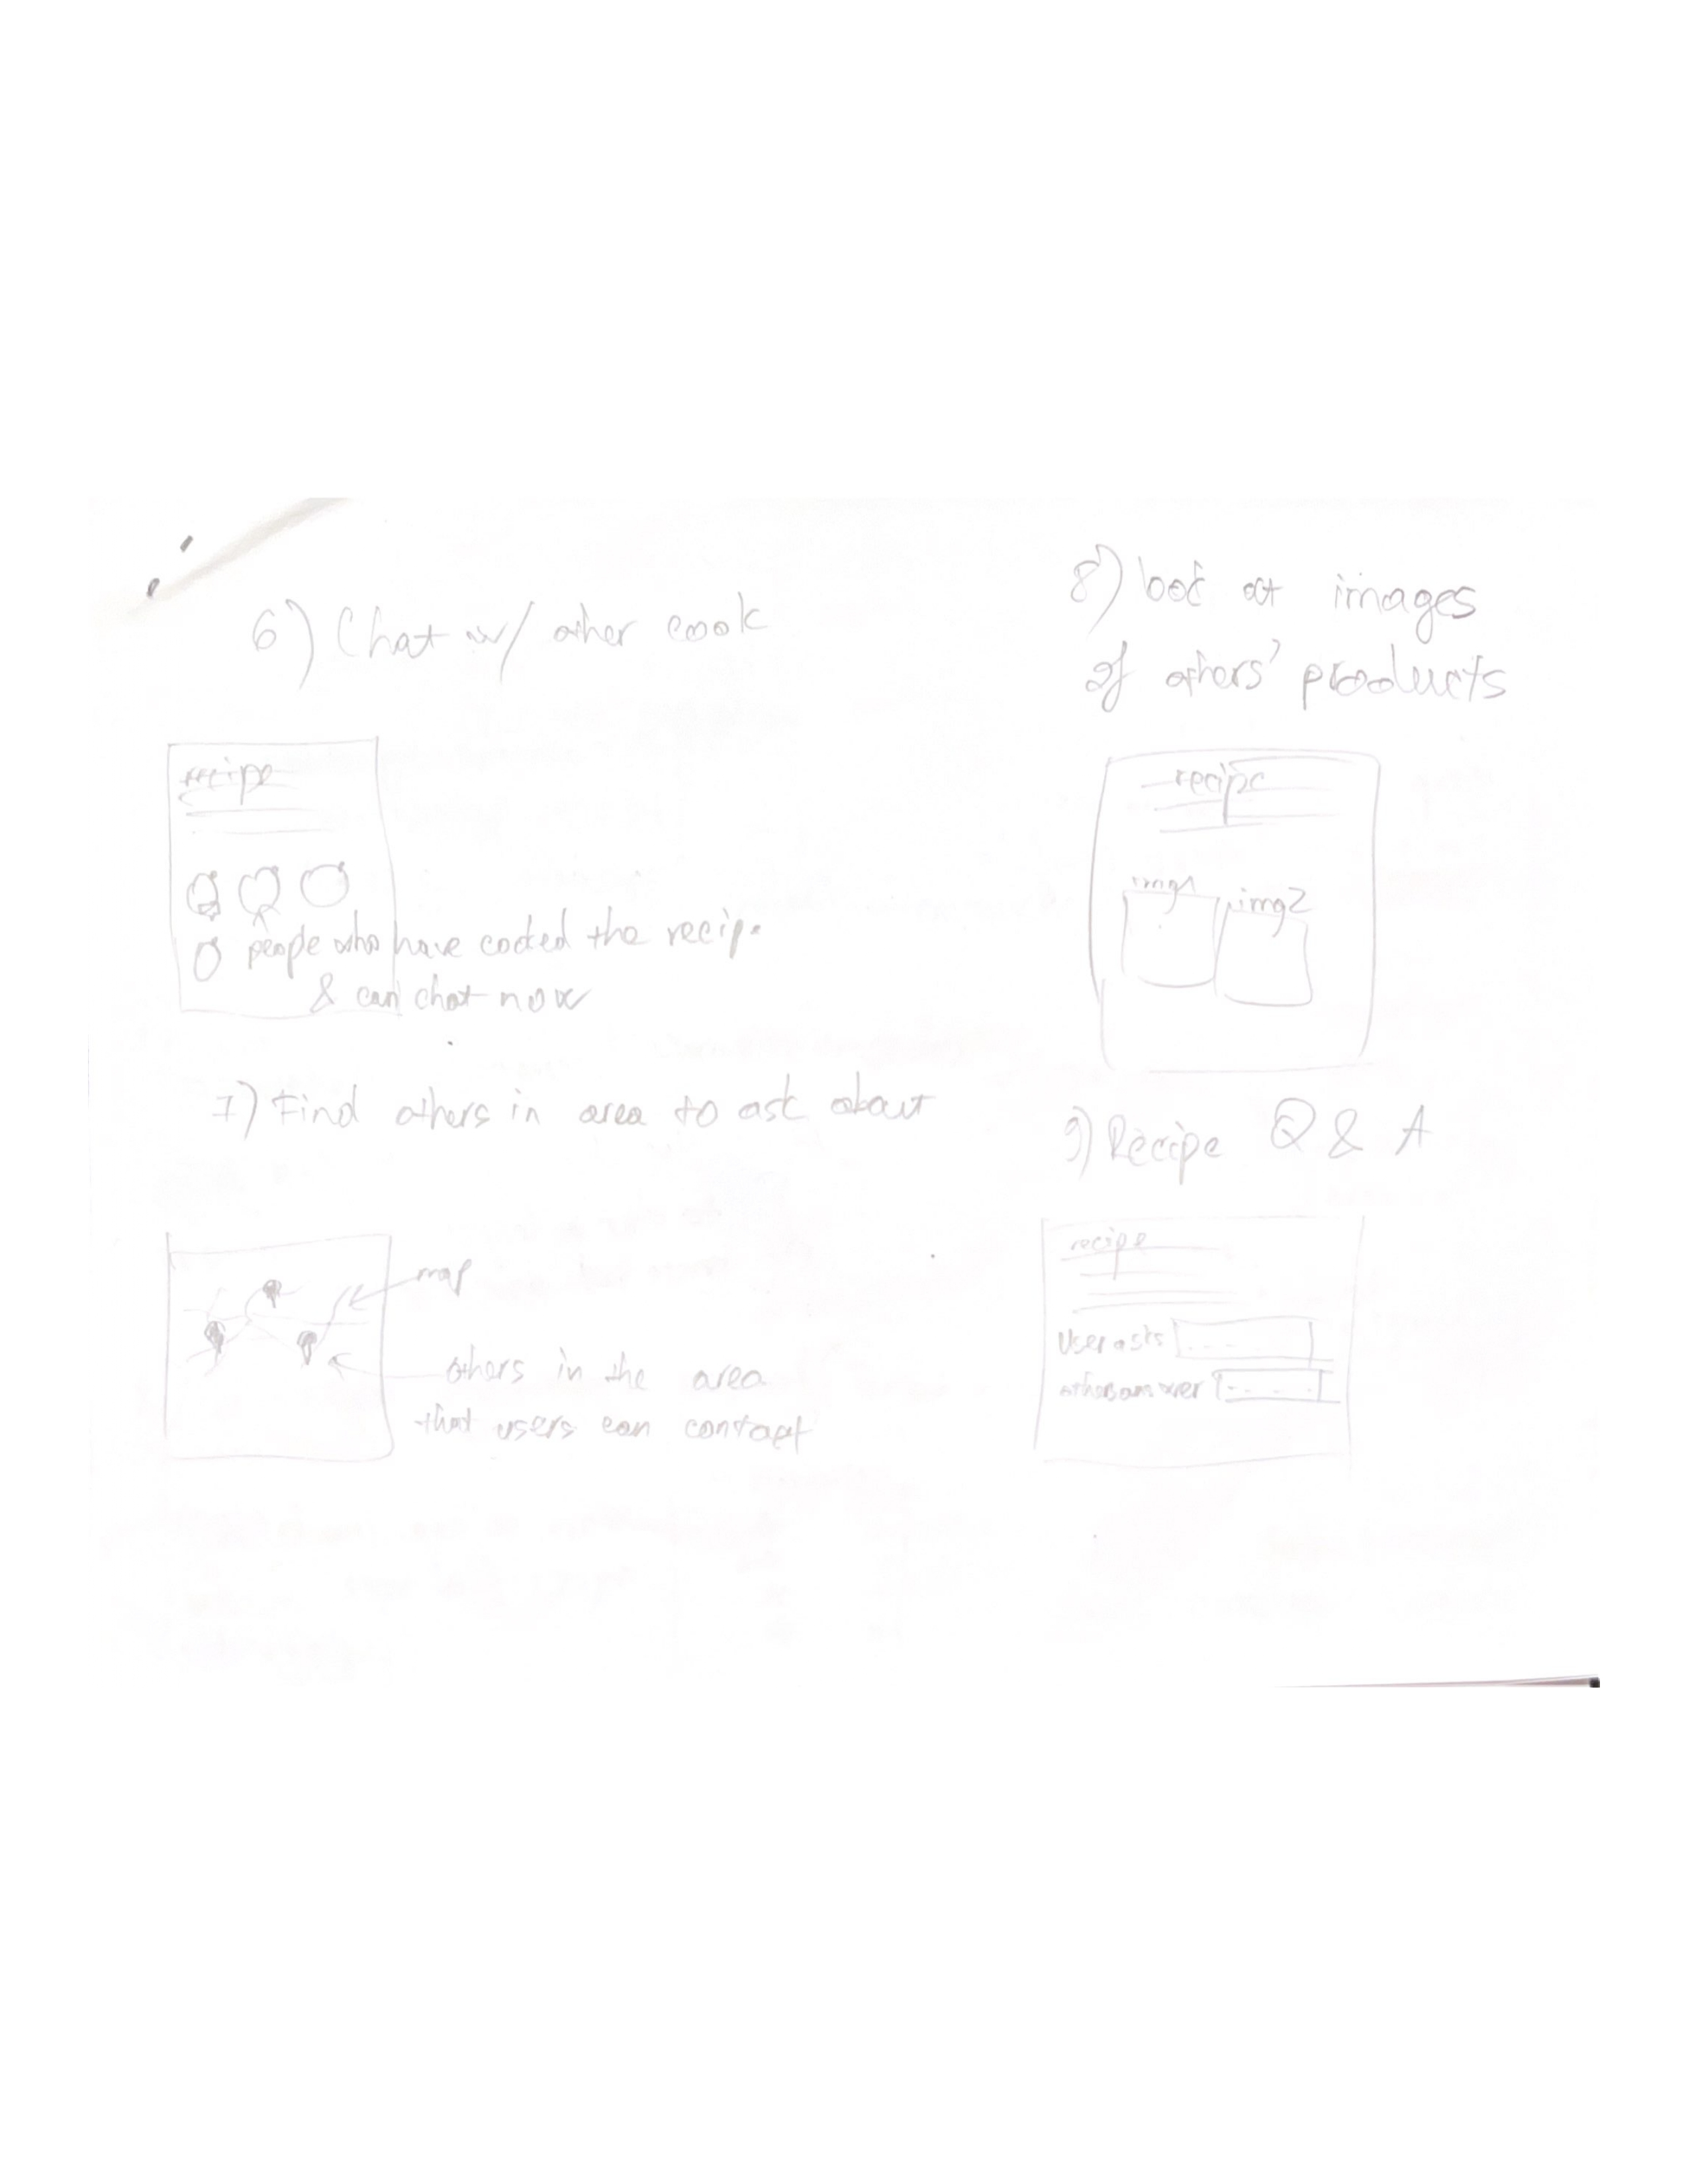 6) Chat w/ other cook
recipe
people who have cooked the recipe
& can chat now
7) Find others in area to ask about
map
others in the area
that users can contact
8) look at images
of others' products
recipe
img1
img2
9) Recipe Q & A
recipe
User asks
others answer